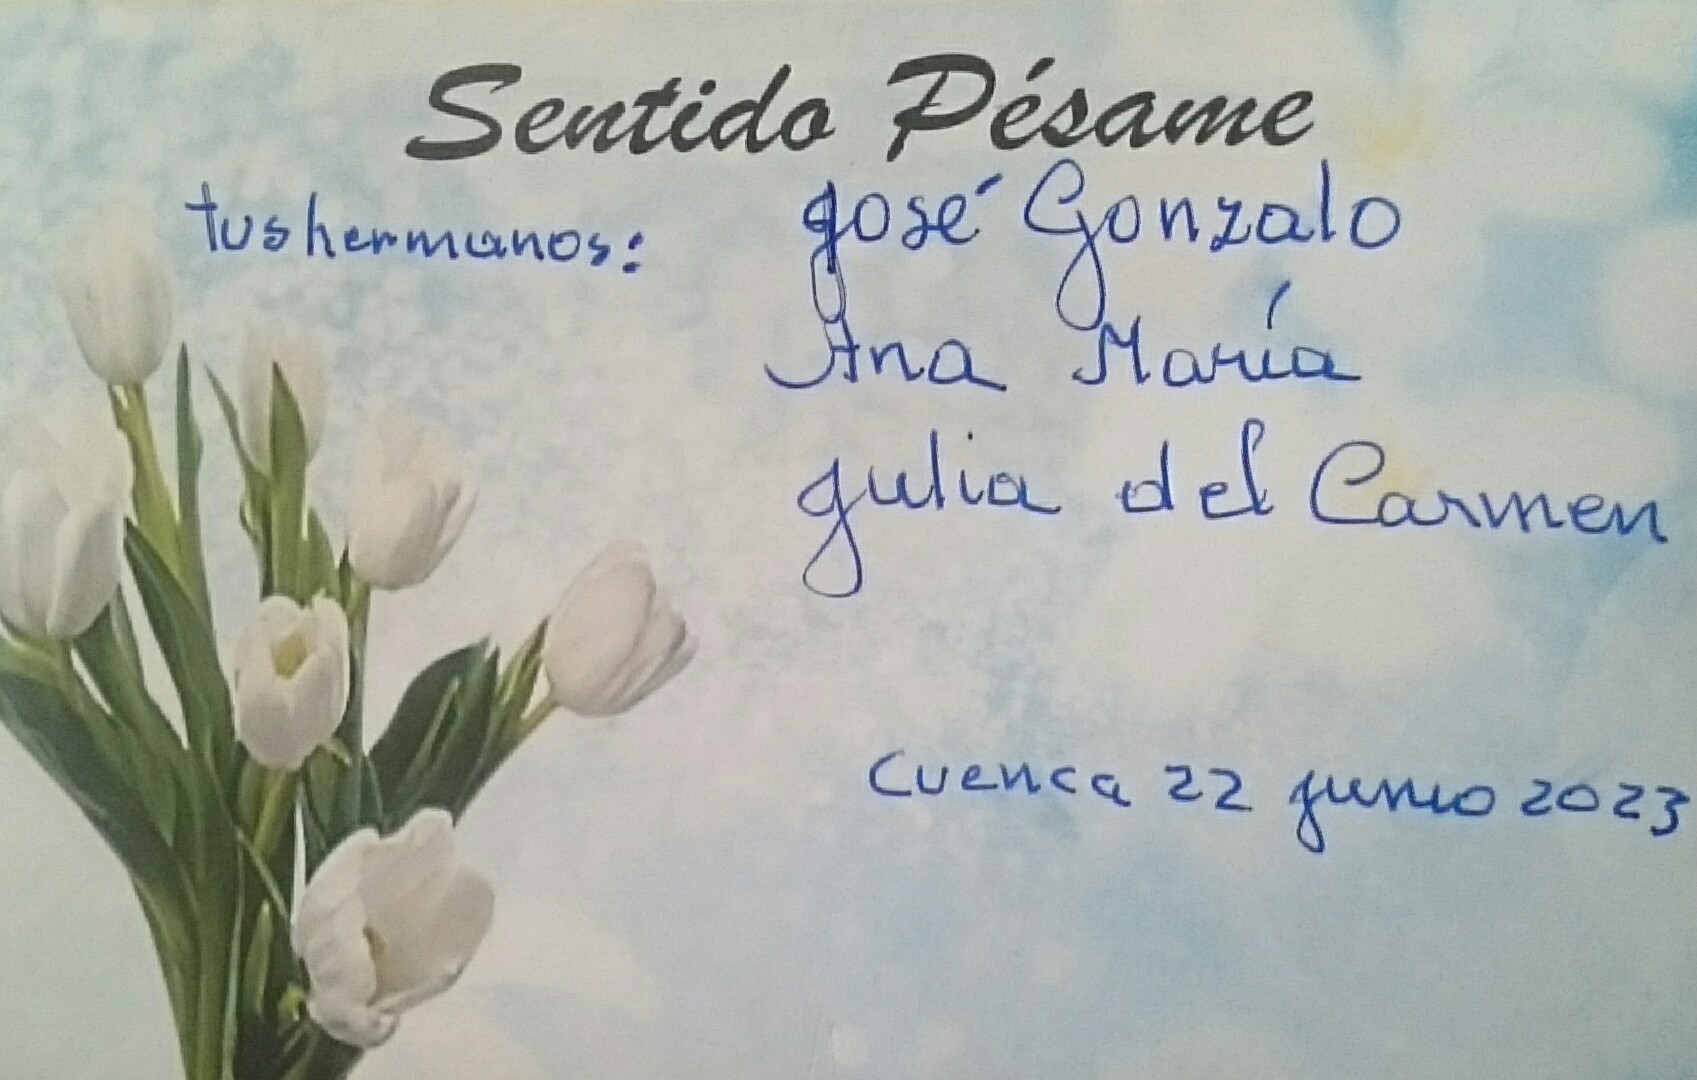 Sentido Pésame
tus hermanos: José Gonzalo
Ana María
Julia del Carmen
Cuenca 22 junio 2023